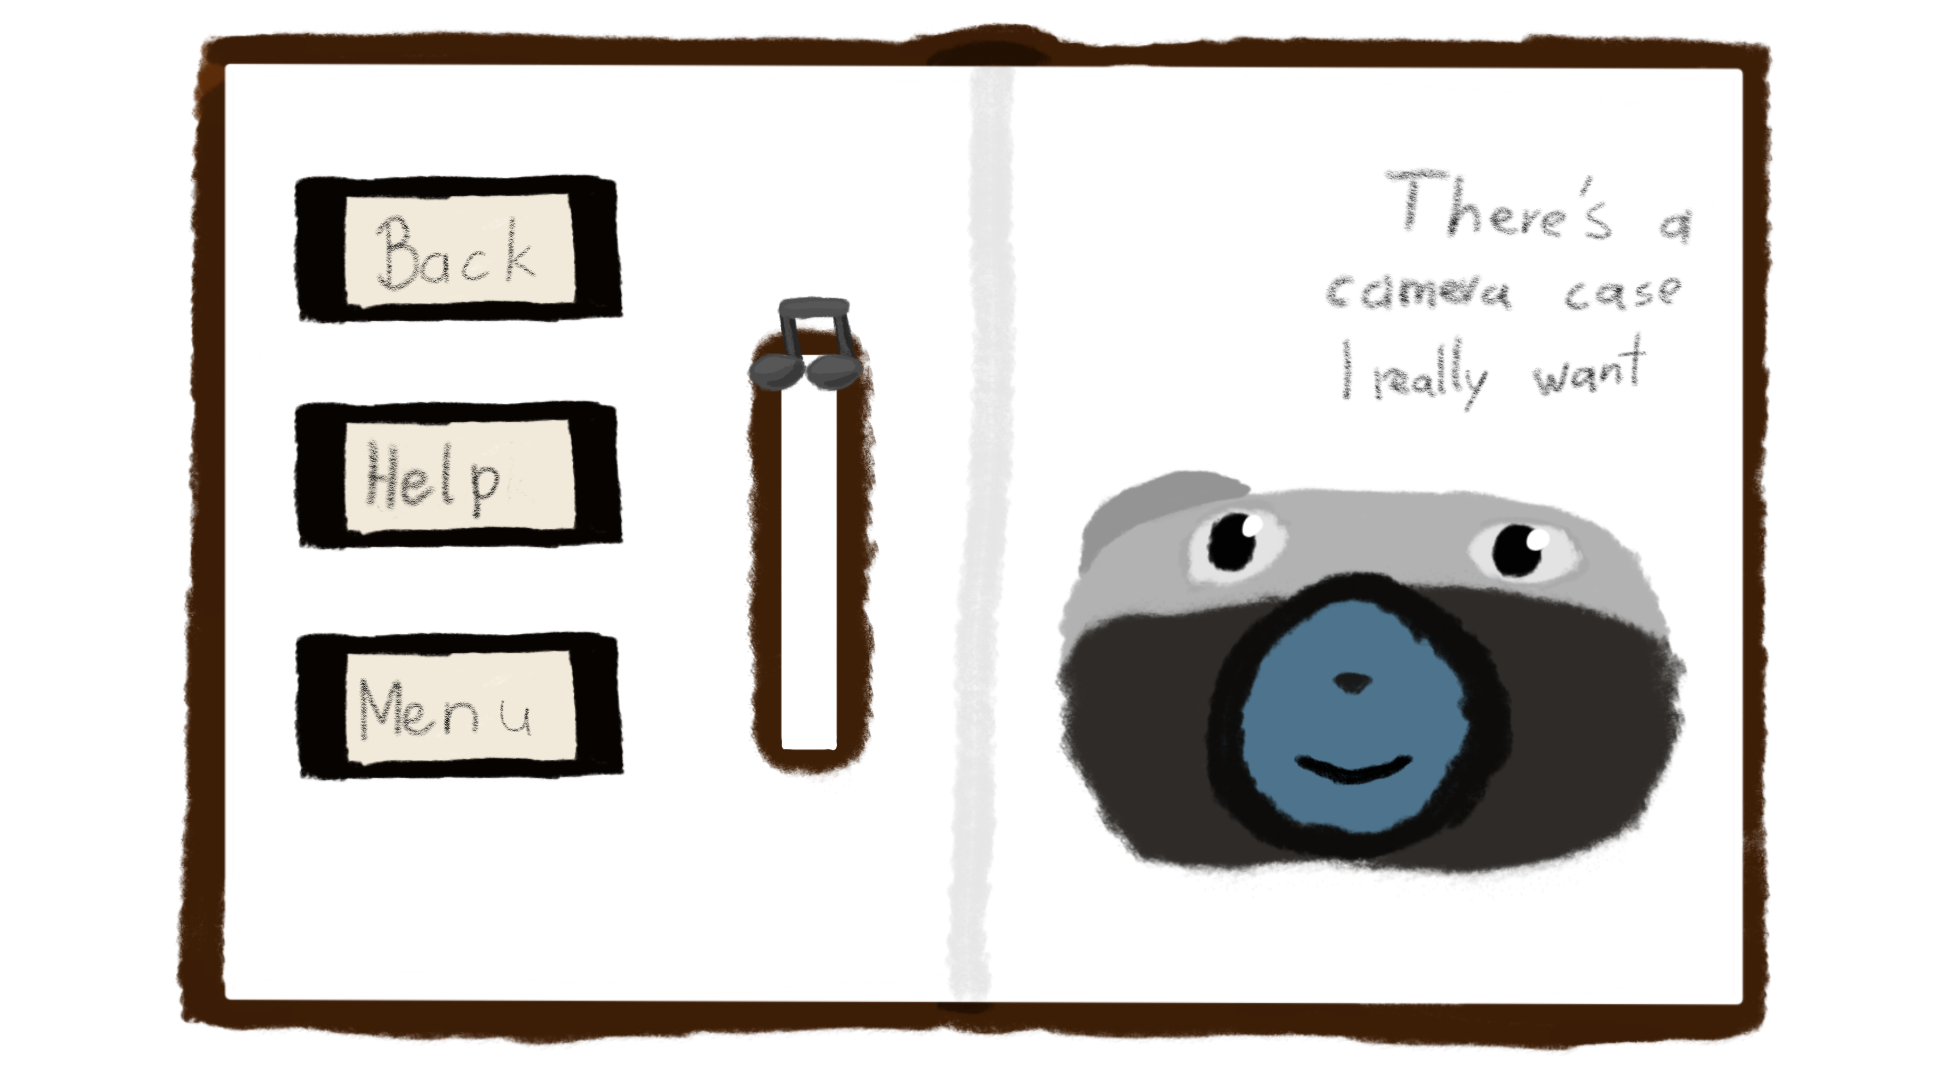 Back
Help
Menu
There's a
camera case
I really want